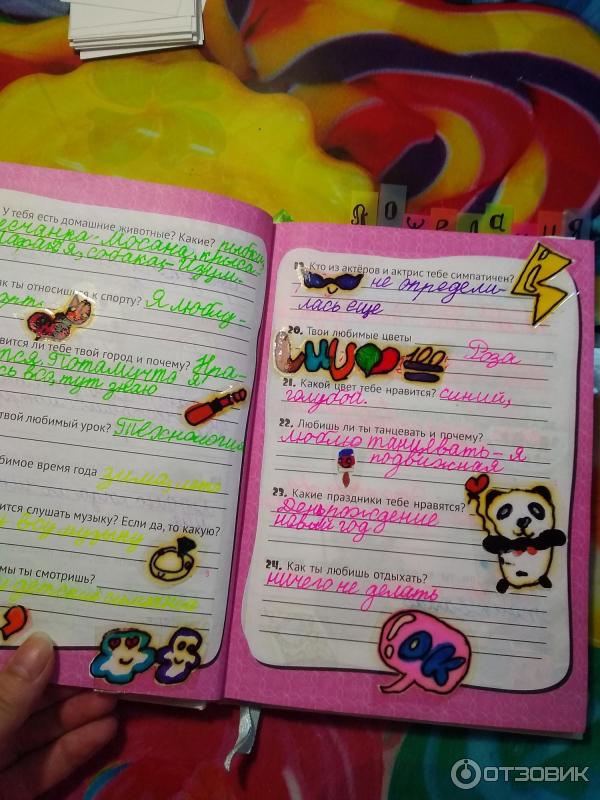 У тебя есть домашние животные? Какие? рыбки,
песчанка - Мосана, крыса
собака - Изюм.
ак ты относишься к спорту? Я люблю
спорт.
вится ли тебе твой город и почему? Нра-
ится Потомучто я
сь всё тут знаю
твой любимый урок? Технология
бимое время года зима, лето
вится слушать музыку? Если да, то какую?
музыку
мы ты смотришь?
детские
Пожела ия
19. Кто из актёров и актрис тебе симпатичен?
не определи-
лась еще
20. Твои любимые цветы
100
Роза
21. Какой цвет тебе нравится? синий,
голубой.
22. Любишь ли ты танцевать и почему?
люблю танцевать - я
подвижная
23. Какие праздники тебе нравятся?
День рождение
новый год
24. Как ты любишь отдыхать?
ничего не делать
OK
ОТЗОВИК